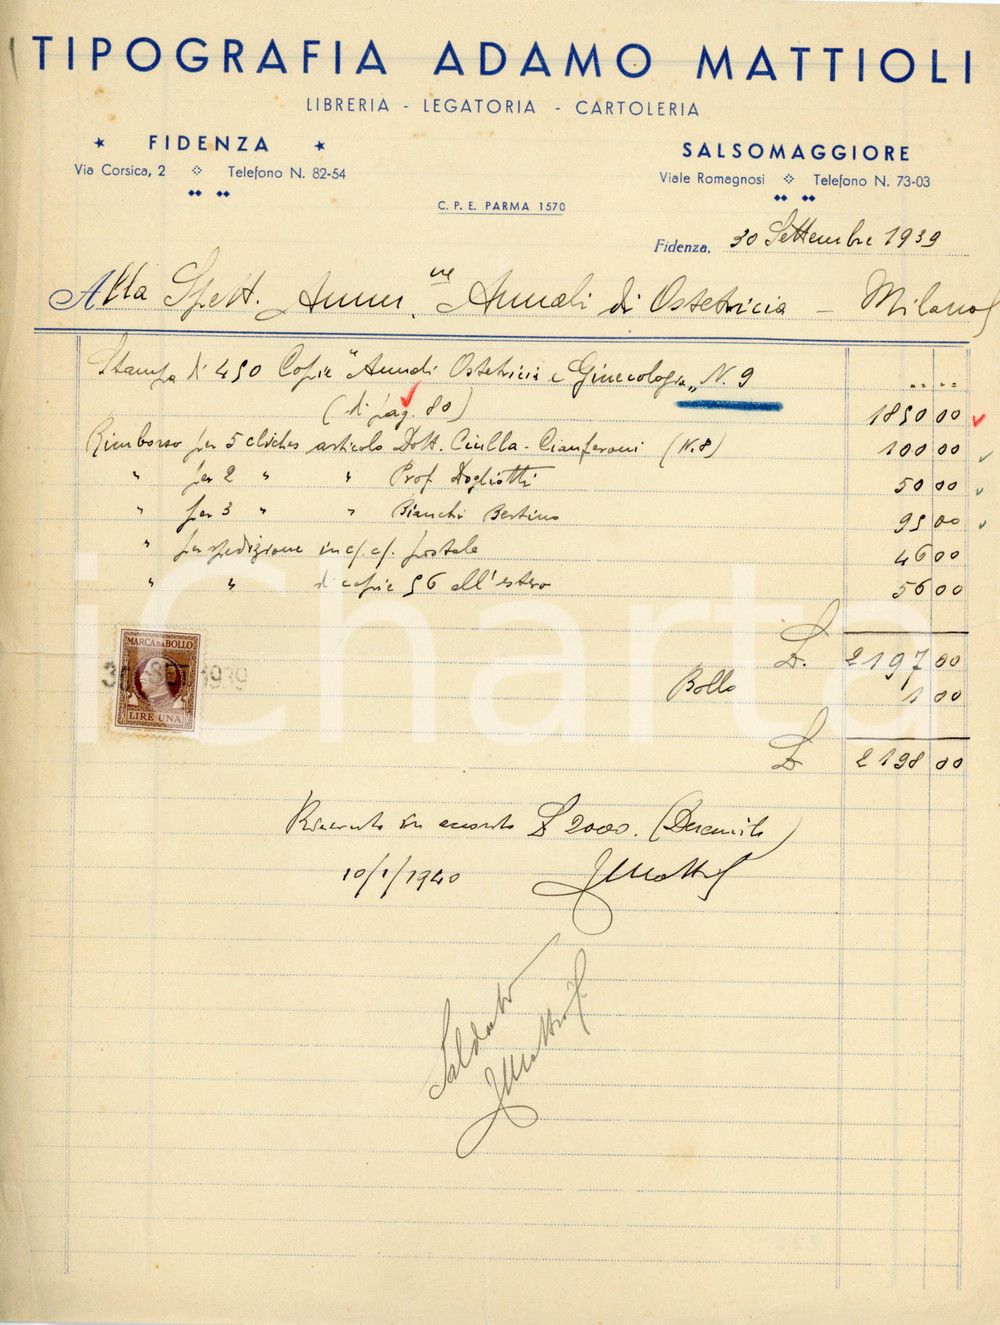 TIPOGRAFIA ADAMO MATTIOLI
LIBRERIA - LEGATORIA - CARTOLERIA
FIDENZA
Via Corsica, 2 Telefono N. 82-54
SALSOMAGGIORE
Viale Romagnosi Telefono N. 73-03
C. P. E. PARMA 1570
Fidenza, 30 Settembre 1939
Alla Spett. Ammi.ne Annali di Ostetricia - Milano
Stampa di 450 Copie "Annali Ostetricia e Ginecologia" N. 9
(di pag. 80) 1850 00
Rimborso per 5 clichés articolo Dott. Ciulla - Cianferoni (N. 8) 100 00
" per 2 " " Prof Dogliotti 50 00
" per 3 " " Bianchi Bertino 95 00
" per spedizione in c/c/ postale 46 00
" " di copie 56 all'estero 56 00
MARCA DA BOLLO
30 SET 1939
LIRE UNA
L. 2197 00
Bollo 1 00
L 2198 00
Ricevuto in acconto L 2000. (Duemila)
10/1/1940 Mattioli
Saldato
Mattioli
iCharta